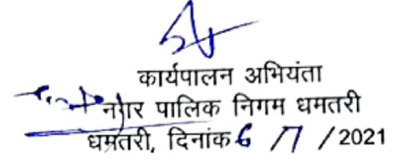 कार्यपालन अभियंता
नगर पालिक निगम धमतरी
धमतरी, दिनांक 6 /7 /2021